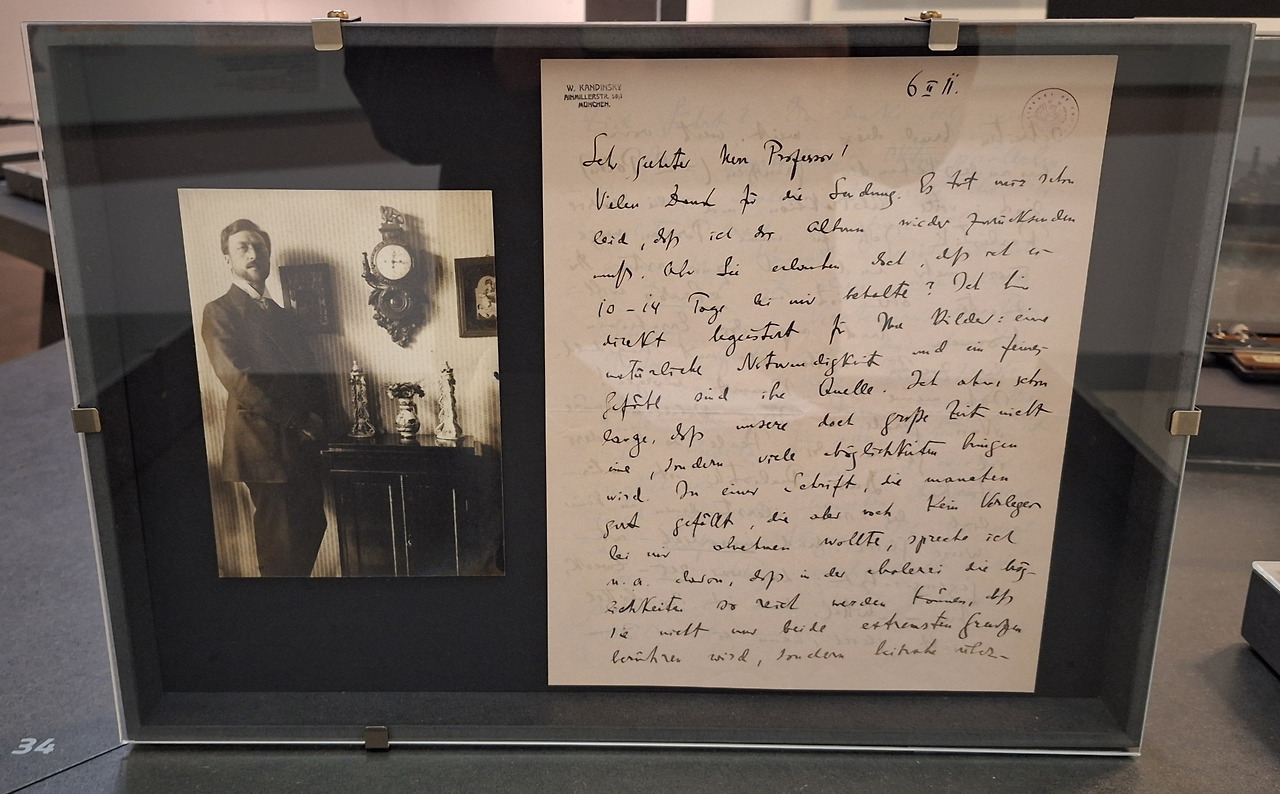 W. KANDINSKY
AINMILLERSTR. 36/I
MÜNCHEN.
6 II 11.
Sehr geehrter Herr Professor!
Vielen Dank für die Sendung. Es tut mir schon
leid, daß ich das Album wieder zurücksenden
muß. Aber Sie erlauben doch, daß ich es
10–14 Tage bei mir behalte? Ich bin
direkt begeistert für Ihre Bilder: eine
natürliche Notwendigkeit und ein feines
Gefühl sind ihre Quelle. Ich ahne schon
lange, daß unsere doch große Zeit nicht
eine, sondern viele Möglichkeiten bringen
wird. In einer Schrift, die manchen
gut gefällt, die aber noch kein Verleger
bei mir abnehmen wollte, spreche ich
u.a. davon, daß in der Malerei die Mög-
lichkeiten so reich werden können, daß
sie nicht nur beide extremsten Grenzen
berühren wird, sondern beinahe über-
34